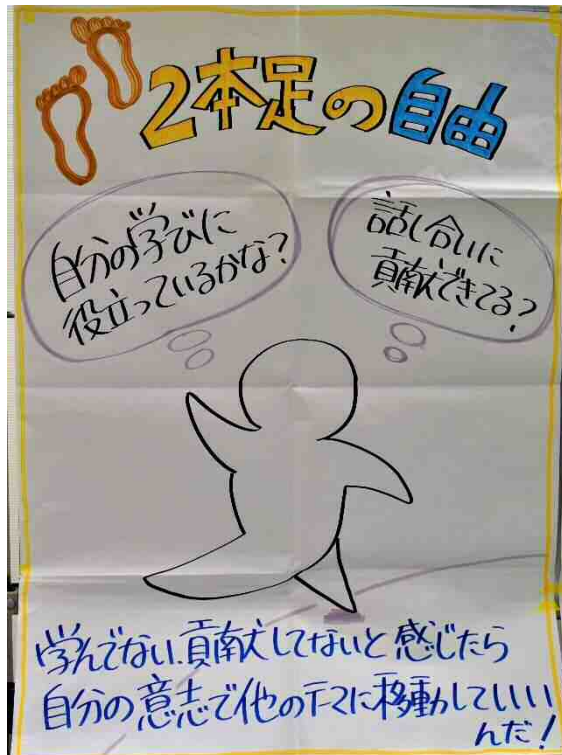 2本足の自由
自分の学びに
役立っているかな?
話し合いに
貢献できてる?
学んでない、貢献してないと感じたら
自分の意志で他のテーマに移動していい
んだ!